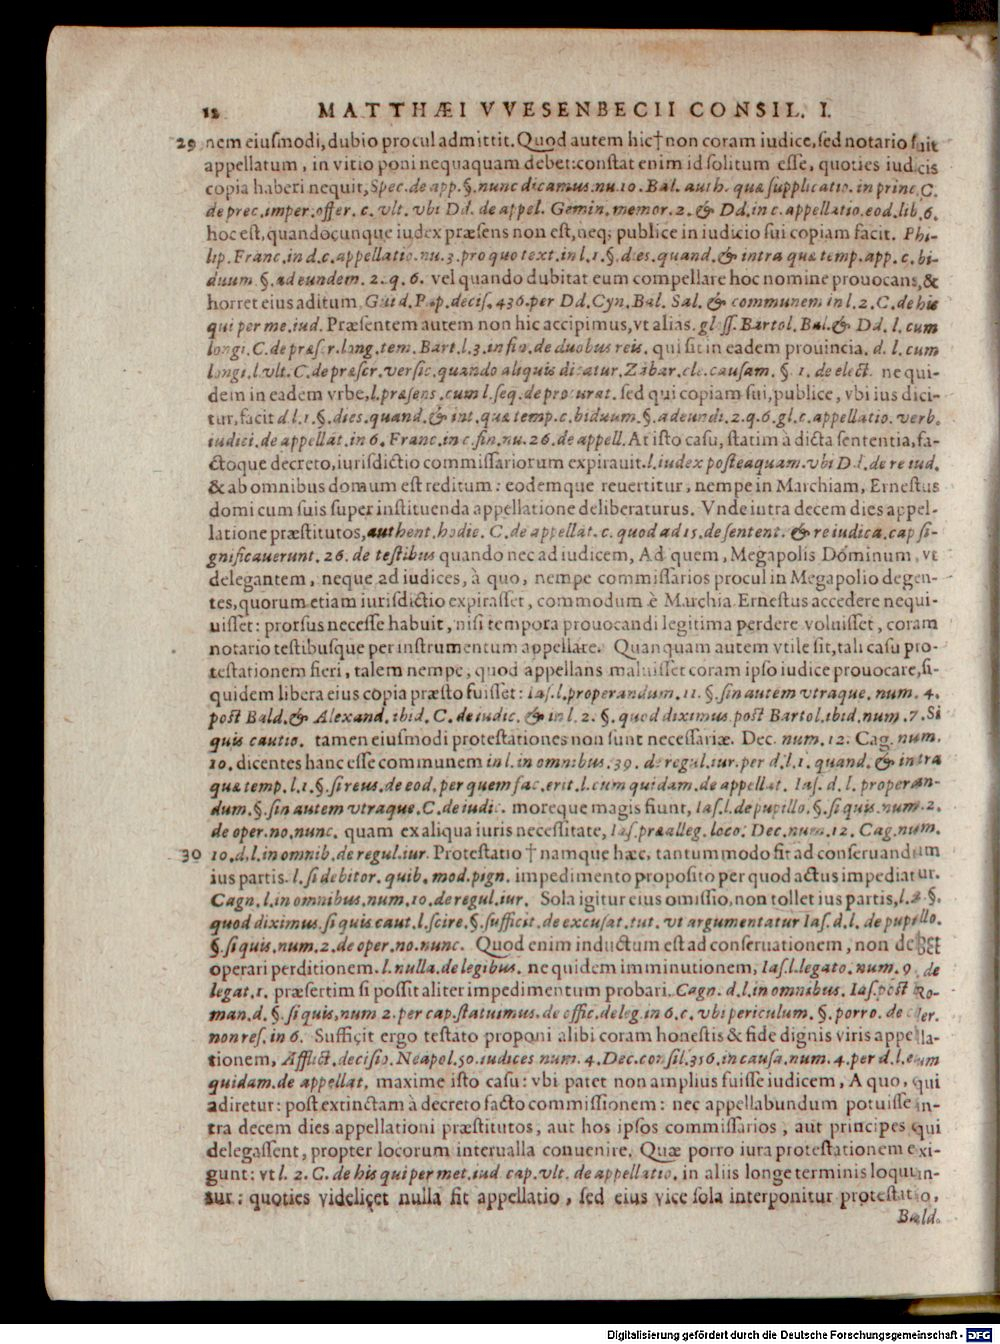 12 MATTHÆI VVESENBECII CONSIL. I.
29 nem eiusmodi, dubio procul admittit. Quod autem hic † non coram iudice, sed notario fuit
appellatum, in vitio poni nequaquam debet: constat enim id solitum esse, quoties iudicis
copia haberi nequit, Spec. de app. §. nunc dicamus. nu. 10. Bal. auth. quæ supplicatio. in princ. C.
de prec. imper. offer. c. vlt. vbi Dd. de appel. Gemin. memor. 2. & Dd. in c. appellatio. eod. lib. 6.
hoc est, quandocunque iudex præsens non est, neq; publice in iudicio sui copiam facit. Phi-
lip. Franc. in d. c. appellatio. nu. 3. pro quo text. in l. 1. §. dies. quand. & intra quæ temp. app. c. bi-
duum. §. ad eundem. 2. q. 6. vel quando dubitat eum compellare hoc nomine prouocans, &
horret eius aditum. Guid. Pap. decis. 436. per Dd. Cyn. Bal. Sal. & communem in l. 2. C. de his
qui per me. iud. Præsentem autem non hic accipimus, vt alias. gloss. Bartol. Bal. & Dd. l. cum
longi. C. de præscr. long. tem. Bart. l. 3. in fin. de duobus reis. qui sit in eadem prouincia. d. l. cum
longi. l. vlt. C. de præscr. versic. quando aliquis dicatur. Zabar. cle. causam. §. 1. de elect. ne qui-
dem in eadem vrbe, l. præsens. cum l. seq. de procurat. sed qui copiam sui, publice, vbi ius dici-
tur, facit d. l. 1. §. dies. quand. & int. quæ temp. c. biduum. §. adeundi. 2. q. 6. gl. c. appellatio. verb.
iudici. de appellat. in 6. Franc. in c. fin. nu. 26. de appell. At isto casu, statim à dicta sententia, fa-
ctoque decreto, iurisdictio commissariorum expirauit. l. iudex posteaquam. vbi Dd. de re iud.
& ab omnibus domum est reditum: eodemque reuertitur, nempe in Marchiam, Ernestus
domi cum suis super instituenda appellatione deliberaturus. Vnde intra decem dies appel-
latione præstitutos, authent. hodie. C. de appellat. c. quod ad 15. de sentent. & re iudica. cap si-
gnificauerunt. 26. de testibus quando nec ad iudicem, Ad quem, Megapolis Dominum, vt
delegantem, neque ad iudices, à quo, nempe commissarios procul in Megapolio degen-
tes, quorum etiam iurisdictio expirasset, commodum è Marchia Ernestus accedere nequi-
uisset: prorsus necesse habuit, nisi tempora prouocandi legitima perdere voluisset, coram
notario testibusque per instrumentum appellare. Quanquam autem vtile sit, tali casu pro-
testationem fieri, talem nempe, quod appellans maluisset coram ipso iudice prouocare, si-
quidem libera eius copia præsto fuisset: Ias. l. properandum. 11. §. sin autem vtraque. num. 4.
post Bald. & Alexand. ibid. C. de iudic. & in l. 2. §. quod diximus. post Bartol. ibid. num. 7. Si
quis cautio. tamen eiusmodi protestationes non sunt necessariæ. Dec. num. 12. Cag. num.
10. dicentes hanc esse communem in l. in omnibus. 39. de regul. iur. per d. l. 1. quand. & intra
quæ temp. l. 1. §. si reus. de eod. per quem fac. erit. l. cum quidam. de appellat. Ias. d. l. properan-
dum. §. sin autem vtraque. C. de iudic. moreque magis fiunt, Ias. l. de pupillo. §. si quis. num. 2.
de oper. no. nunc. quam ex aliqua iuris necessitate, Ias. præalleg. loco. Dec. num. 12. Cag. num.
30 10. d. l. in omnib. de regul. iur. Protestatio † namque hæc, tantummodo fit ad conseruandum
ius partis. l. si debitor. quib. mod. pign. impedimento proposito per quod actus impediatur.
Cagn. l. in omnibus. num. 10. de regul. iur. Sola igitur eius omissio, non tollet ius partis, l. 2. §.
quod diximus. si quis caut. l. scire. §. sufficit. de excusat. tut. vt argumentatur Ias. d. l. de pupillo.
§. si quis. num. 2. de oper. no. nunc. Quod enim inductum est ad conseruationem, non debet
operari perditionem. l. nulla. de legibus. ne quidem imminutionem, Ias. l. legato. num. 9. de
legat. 1. præsertim si possit aliter impedimentum probari. Cagn. d. l. in omnibus. Ias. post Ro-
man. d. §. si quis, num 2. per cap. statuimus. de offic. deleg. in 6. c. vbi periculum. §. porro. de cler.
non res. in 6. Sufficit ergo testato proponi alibi coram honestis & fide dignis viris appella-
tionem, Afflict. decisio. Neapol. 50. iudices num. 4. Dec. consil. 316. in causa. num. 4. per d. l. cum
quidam. de appellat, maxime isto casu: vbi patet non amplius fuisse iudicem, A quo, qui
adiretur: post extinctam à decreto facto commissionem: nec appellabundum potuisse in-
tra decem dies appellationi præstitutos, aut hos ipsos commissarios, aut principes qui
delegassent, propter locorum interualla conuenire. Quæ porro iura protestationem exi-
gunt: vt l. 2. C. de his qui per met. iud cap. vlt. de appellatio. in aliis longe terminis loquun-
tur: quoties videlicet nulla fit appellatio, sed eius vice sola interponitur protestatio,
Bald.
Digitalisierung gefördert durch die Deutsche Forschungsgemeinschaft - DFG